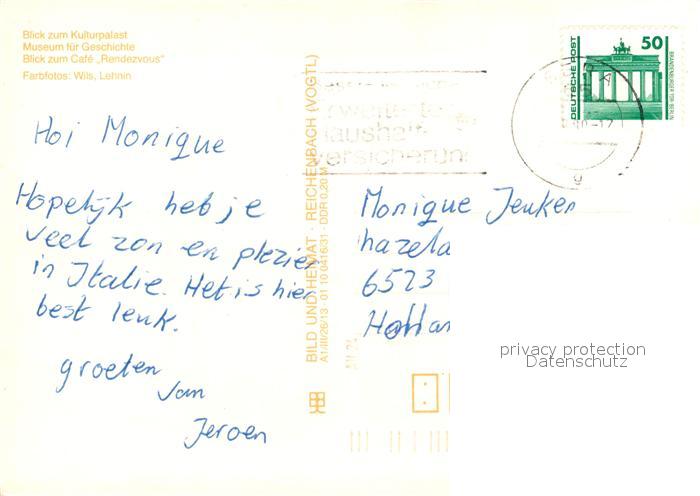 Blick zum Kulturpalast
Museum für Geschichte
Blick zum Café „Rendezvous"
Farbfotos: Wils, Lehnin
DEUTSCHE POST
50
BRANDENBURGER TOR BERLIN
Haushalt-
versicherung
Hoi Monique
Hopelijk heb je
veel zon en plezier
in Italie. Het is hier
best leuk.
groeten
van
Jeroen
BILD UND HEIMAT · REICHENBACH (VOGTL)
A1/III/26/13 · 01 10 0416/31 · DDR 0,20 M
Monique Jenken
hazela
6523
Hollan
privacy protection
Datenschutz